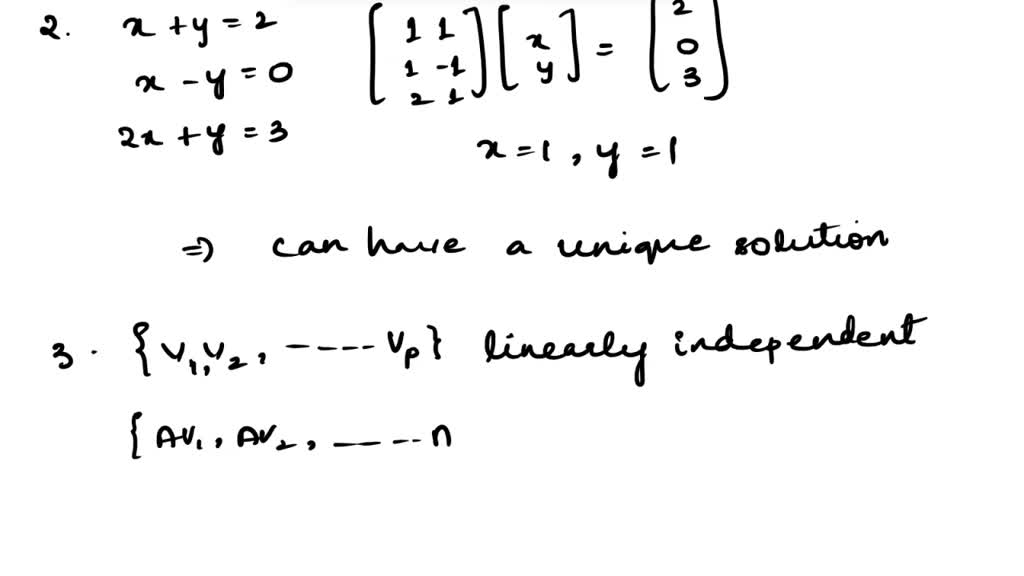 2. x + y = 2 [1 1 1 -1 2 1] [x y] = [2 0 3]
x - y = 0
2x + y = 3
x = 1, y = 1
⇒ can have a unique solution
3. {V₁, V₂, ---- Vₚ} linearly independent
{AV₁, AV₂, --- n